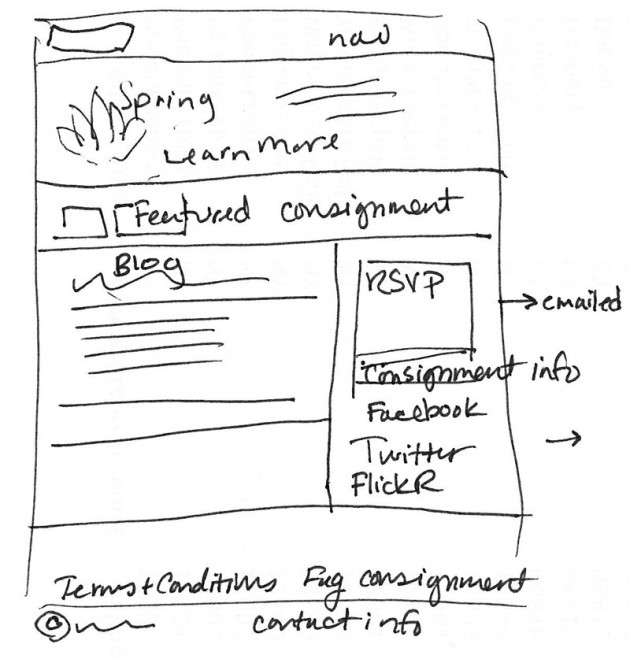 nav
Spring
Learn more
Featured consignment
Blog
RSVP
→ emailed
consignment info
Facebook
Twitter
→
FlickR
Terms + Conditions Faq consignment
© contact info